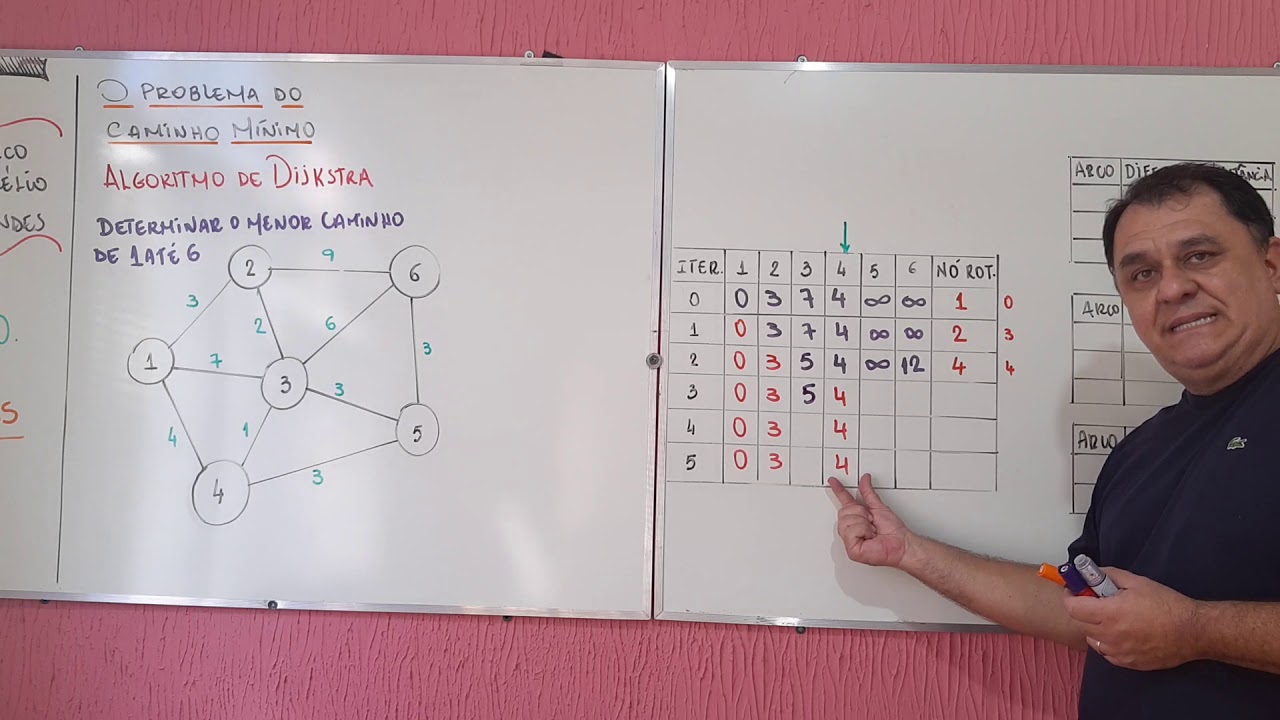 CO
ÉLIO
NDES
O.
S
O PROBLEMA DO
CAMINHO MÍNIMO
ALGORITMO DE DIJKSTRA
DETERMINAR O MENOR CAMINHO
DE 1 ATÉ 6
2 9 6
3 2 6 3
1 7 3 3
4 1 5
4 3
ITER. 1 2 3 4 5 6 NÓ ROT.
0 0 3 7 4 ∞ ∞ 1 0
1 0 3 7 4 ∞ ∞ 2 3
2 0 3 5 4 ∞ 12 4 4
3 0 3 5 4
4 0 3 4
5 0 3 4
ARCO
ARCO
ARCO